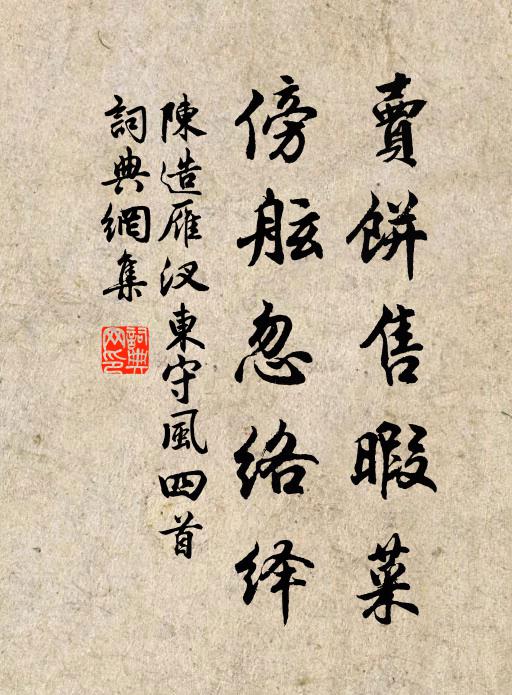 賣餅售暇菜
傍舷忽络绎
陳造雁汊東守風四首
詞典網集
詞典網印